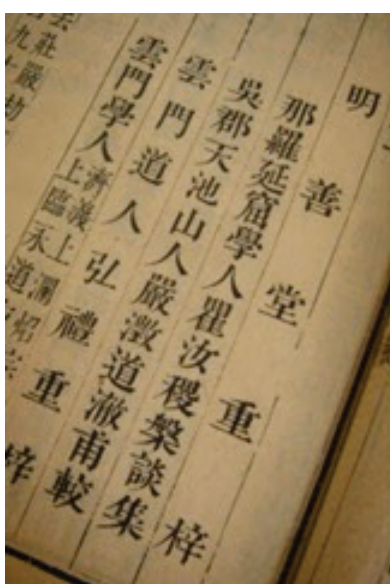 明善堂重梓
那羅延窟學人瞿汝稷槃談集
吳郡天池山人嚴澂道澈甫較
雲門道人弘禮重梓
雲門學人
莊嚴劫
九